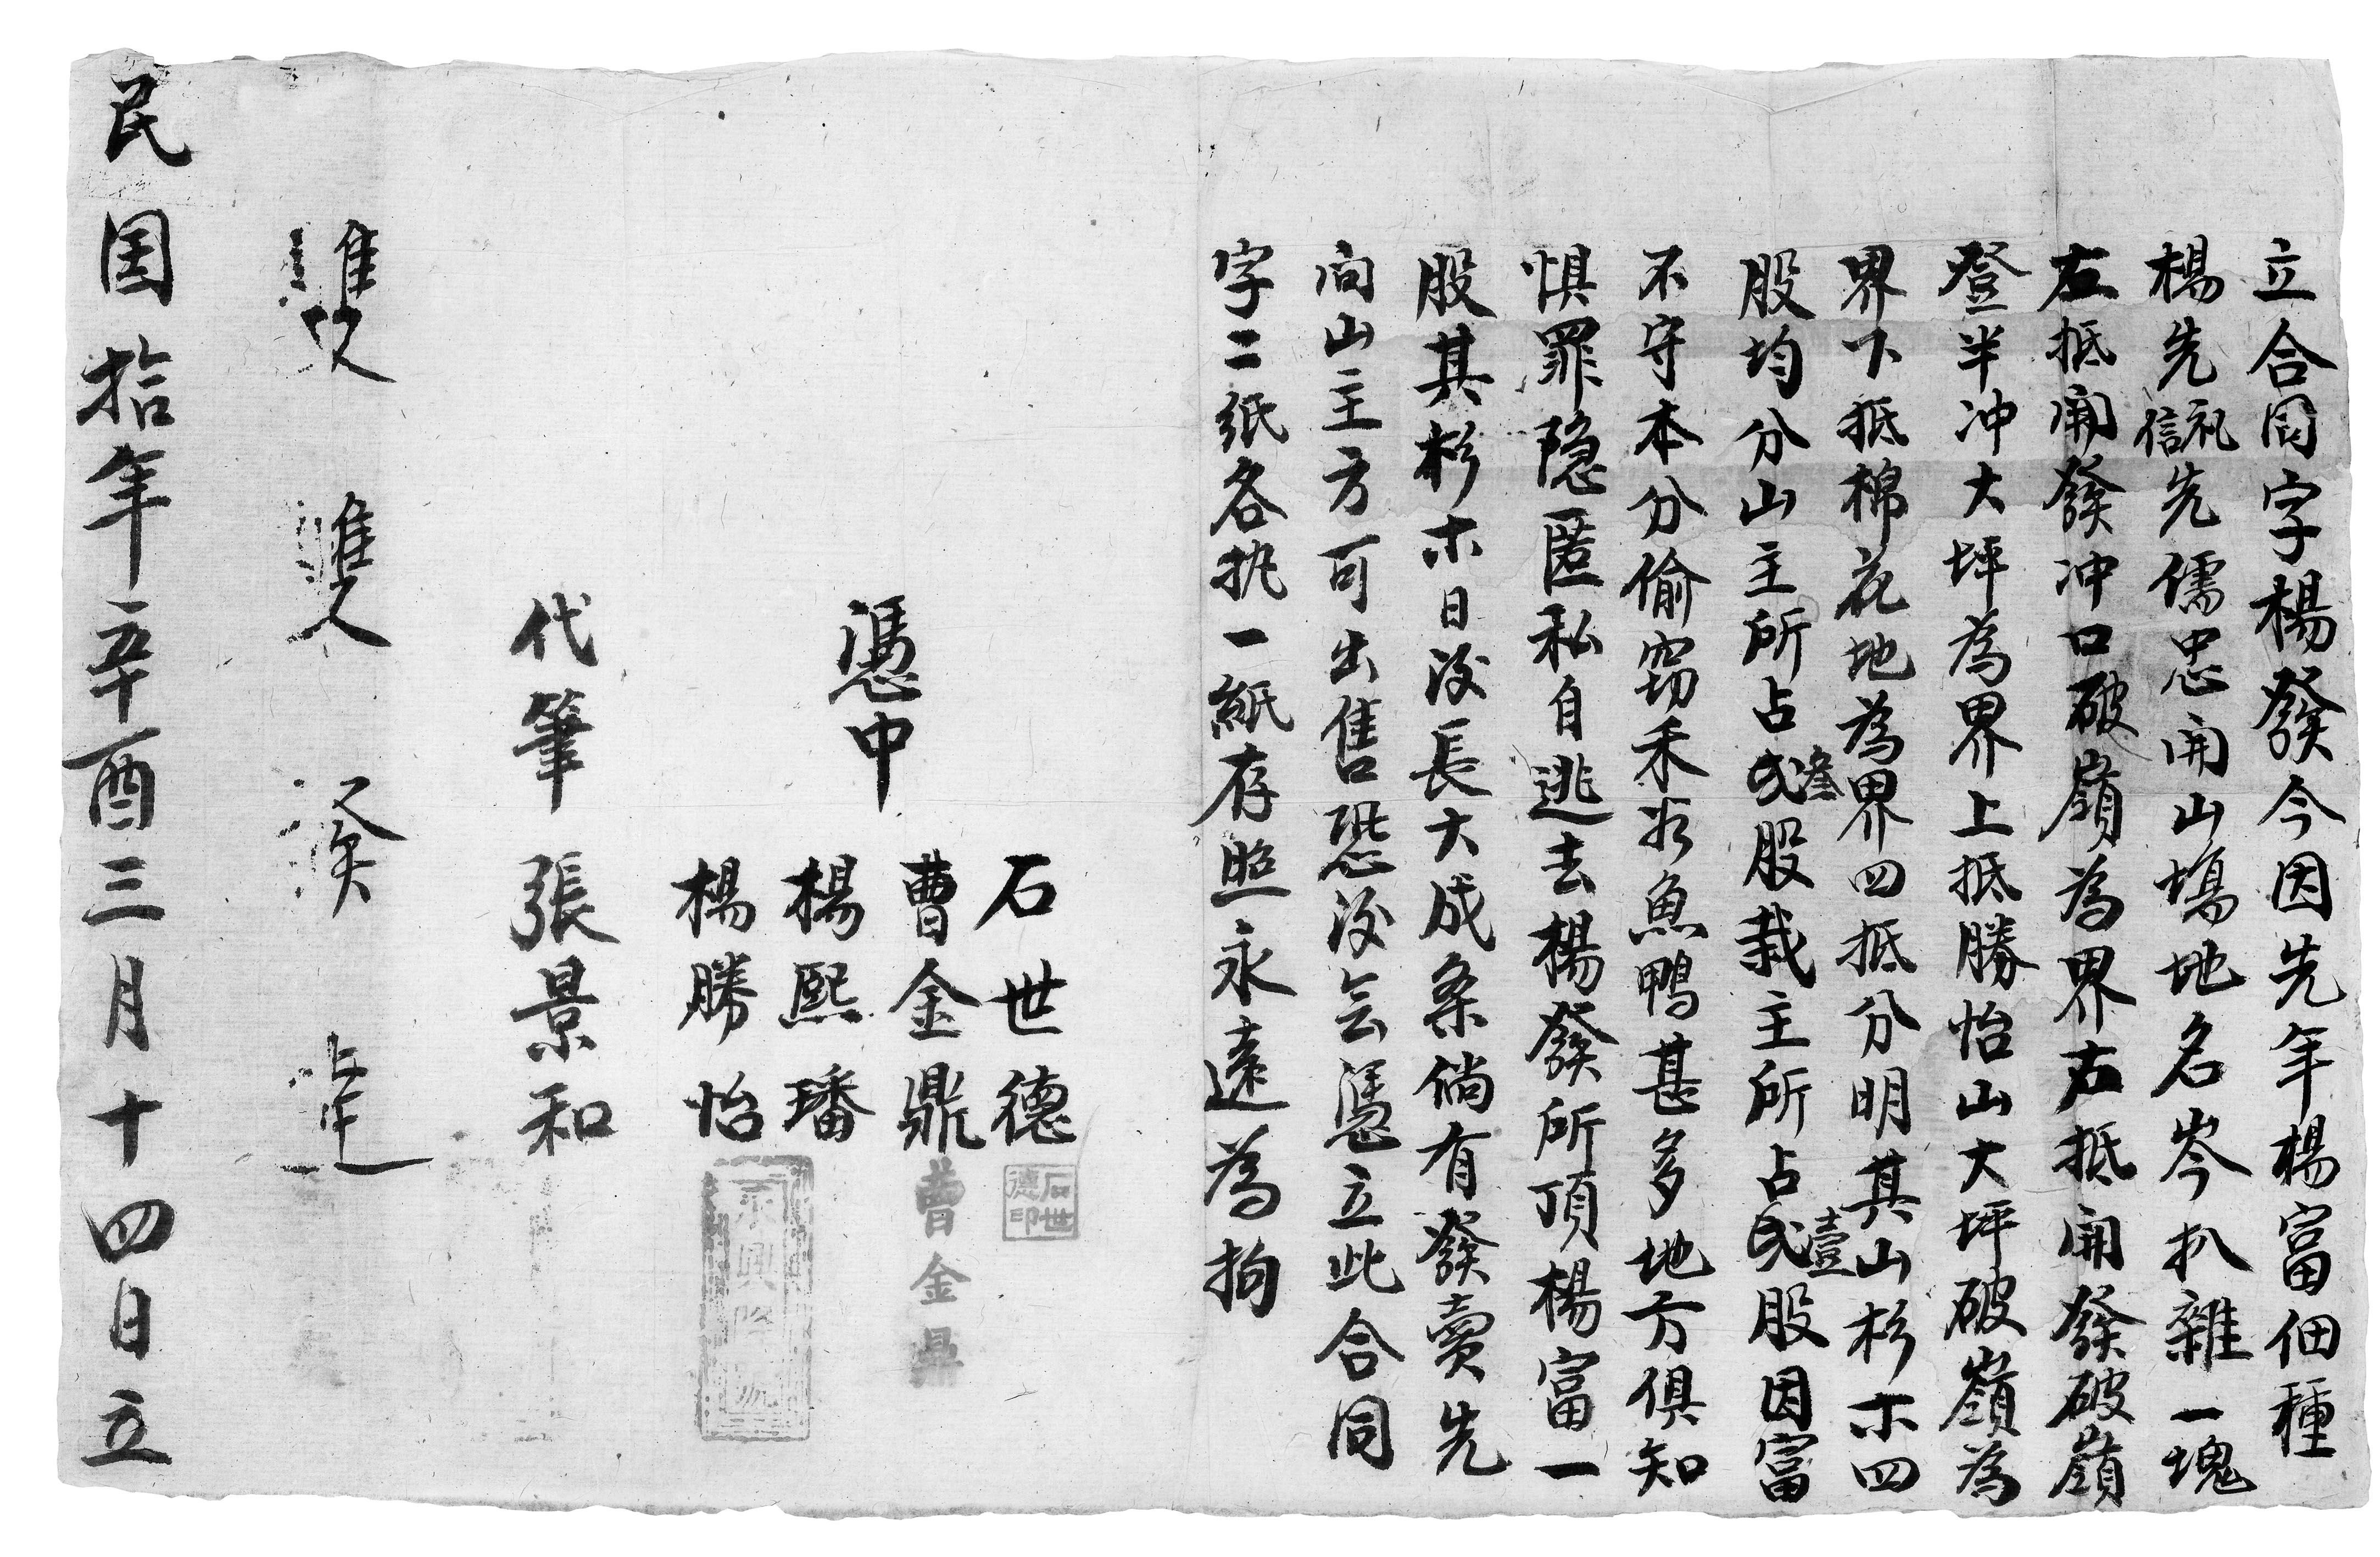 立合同字楊發今因先年楊富佃種
楊先礼信先儒忠開山塲地名岑扒雜一塊
左抵開發冲口破嶺為界右抵開發破嶺
登半冲大坪為界上抵勝怡山大坪破嶺為
界下抵棉花地為界四抵分明其山杉木四
股均分山主所占弍叁股栽主所占弍壹股因富
不守本分偷窃禾谷魚鴨甚多地方俱知
惧罪隐匿私自逃去楊發所頂楊富一
股其杉木日後長大成条倘有發賣先
向山主方可出售恐後無憑立此合同
字二紙各执一紙存照永遠為拘
石世德
石世德印
曹金鼎
曹金鼎
憑中
楊熙璠
楊勝怡
代筆張景和
雙雙發達
民国拾年辛酉三月十四日立